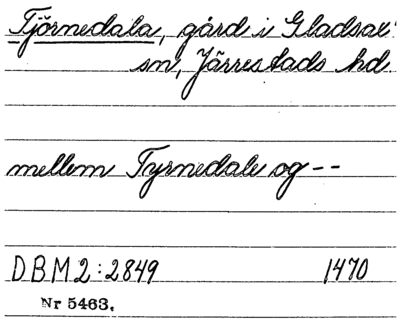 Tjörnedala, gård i Gladsax
sn, Järrestads hd.
mellem Tyrnedale og --
DBM2:2849 1470
Nr 5463.